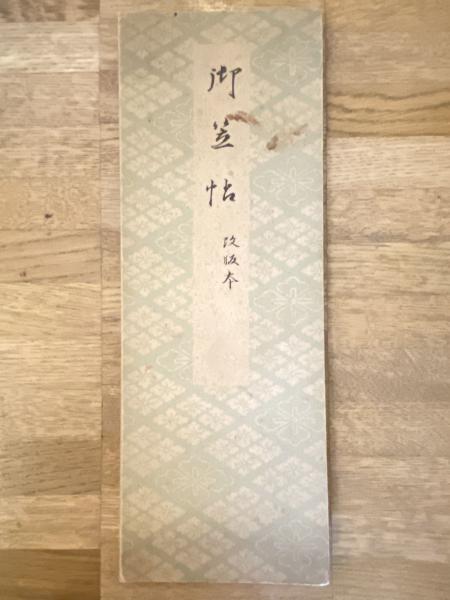 御笠帖
改版本